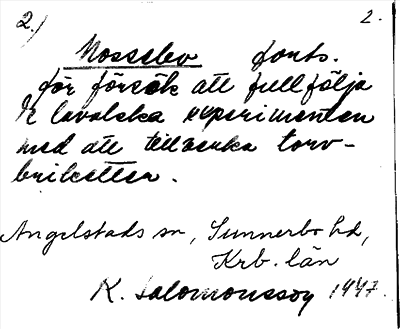 2.) 2.
Mosselev forts.
för försök att fullfölja
de lavalska experimenten
med att tillverka torv-
briketter.
Angelstads sn, Sunnerbo hd,
Krb. län
K. Salomonsson 1947.